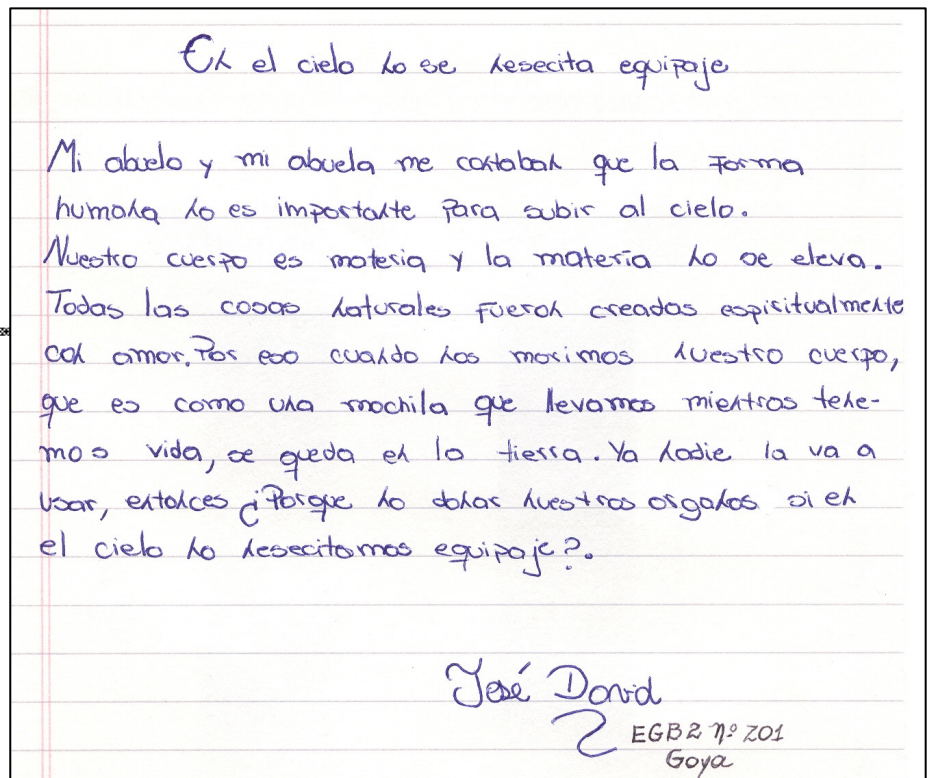 En el cielo no se nesecita equipaje
Mi abuelo y mi abuela me contaban que la forma
humana no es importante para subir al cielo.
Nuestro cuerpo es materia y la materia no se eleva.
Todas las cosas naturales fueron creadas espiritualmente
con amor. Por eso cuando nos morimos nuestro cuerpo,
que es como una mochila que llevamos mientras tene-
mos vida, se queda en la tierra. Ya nadie la va a
usar, entonces ¿Porque no donar nuestros organos si en
el cielo no nesecitamos equipaje?.
José David
EGB2 nº 201
Goya